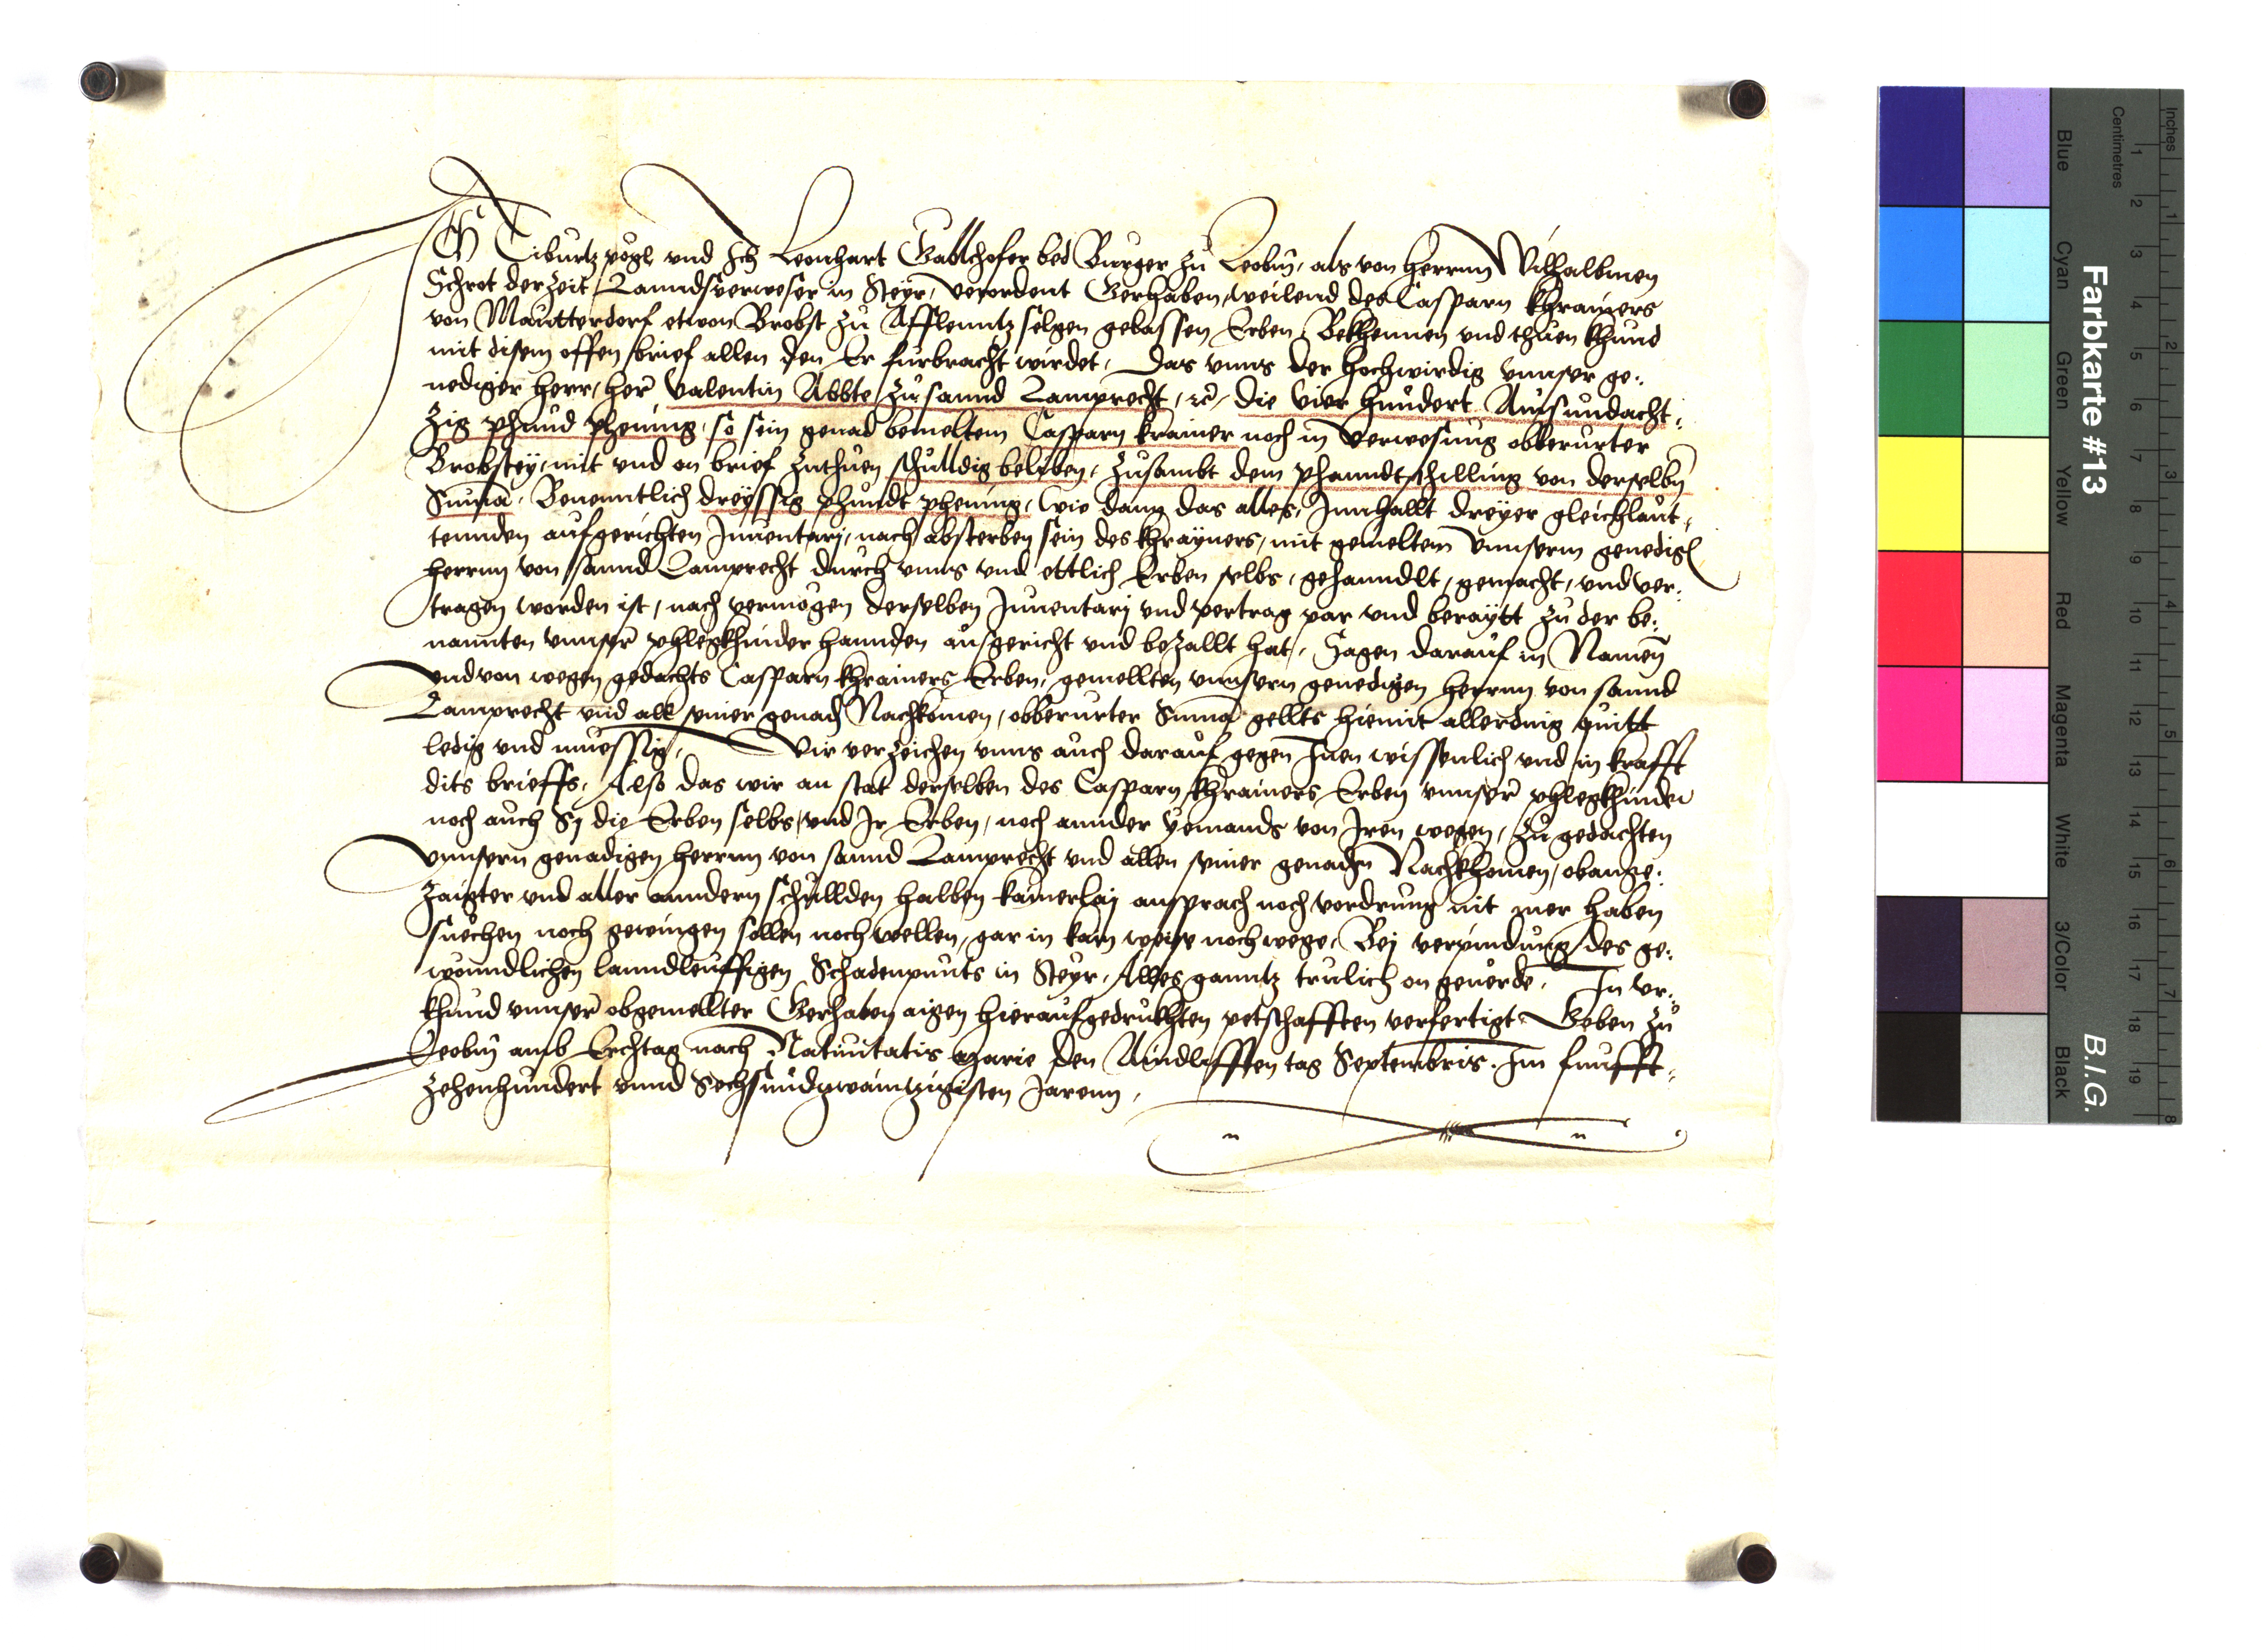 Ich Tiburtz vogl vnd Ich Leonhart Gallhofer bed Burger zu Leobm̄, als von herrnn Wilhalbmen
Schrot der Zeit Lanndsverweser in Steyr, verordent Gerhaben, weilend des Casparn khrainers
von Mautterdorf etwon Brobst zu Afflenntz selgen gelassen Erben, Bekhennen vnd thuen khund
mit disem offen brief allen den Er furbracht wirdet, Das vnns der hochwirdig vnnser ge:
nediger herr, her Valentin Abbte zu sannd Lamprecht, ꝛc̃, die vier hundert Ainsundacht:
zig phund phening, so sein genad bemeltem Casparn krainer noch in verwesung obberurter
Brobstey, mit vnd on brief zuthuen schulldig beliben, zusambt dem phanndtschilling von derselbn̄
Suma, Benenntlich dreyssig phundt phening, wie dann das alles, Innhallt dreyer gleichlaut:
tennden aufgerichten Inuentarj, nach absterben sein des khrayners, mit gemeltem vnnserm genedign
herrnn von sannd Lamprecht durch vnns vnd ettlich Erben selbs, gehanndlt, gemacht, vnd ver:
tragen worden ist, nach vermogen derselben Inuentarj vnd vertrag par vnd beraytt zu der be:
nannten vnnser phlegkhinder hannden ausgericht vnd bezallt hat, Sagen darauf in Namen
vnd von wegen gedachts Casparn khrainers Erben, gemellten vnnsern genedigen herrnn von sannd
Lamprecht vnd all seiner genaden Nachkomen, obberurter Suma gellts hiemit allerding quitt
ledig vnd muessig, Wir verzeichen vnns auch darauf gegen Inen wissenlich vnd in krafft
dits brieffs, Also das wir an stat derselben des Casparn khrainers Erben vnnser phlegkhinder
noch auch Sy die Erben selbs, vnd Ir Erben, noch annder yemands von Iren wegen, zu gedachten
vnnsern genadigen herrnn von sannd Lamprecht vnd allen seiner genaden Nachkhomen, obange:
zaigter vnd aller anndern schullden halben kainerlaj ansprach noch vordrung nit mer haben
suechen noch gewingen sollen noch wellen, gar in kain weise noch wege, Bej verpindung des ge:
wonndlichen lanndleuffigen Schadenpunts in Steyr, Alles ganntz trulich on geuerde, In vr:
khund vnnser obgemellter Gerhaben aigen hieraufgedrukhten petschafften verfertigt, Geben zu
Leobm̄ amb Erchtag nach Natiuitatis Marie den Aindlefften tag Septembris. Im funfft:
zehenhundert vnnd Sechsundzwaintzigisten Jarenn,
Farbkarte #13
B.I.G.
Inches
Centimetres
1 2 3 4 5 6 7 8
1 2 3 4 5 6 7 8 9 10 11 12 13 14 15 16 17 18 19
Blue
Cyan
Green
Yellow
Red
Magenta
White
3/Color
Black